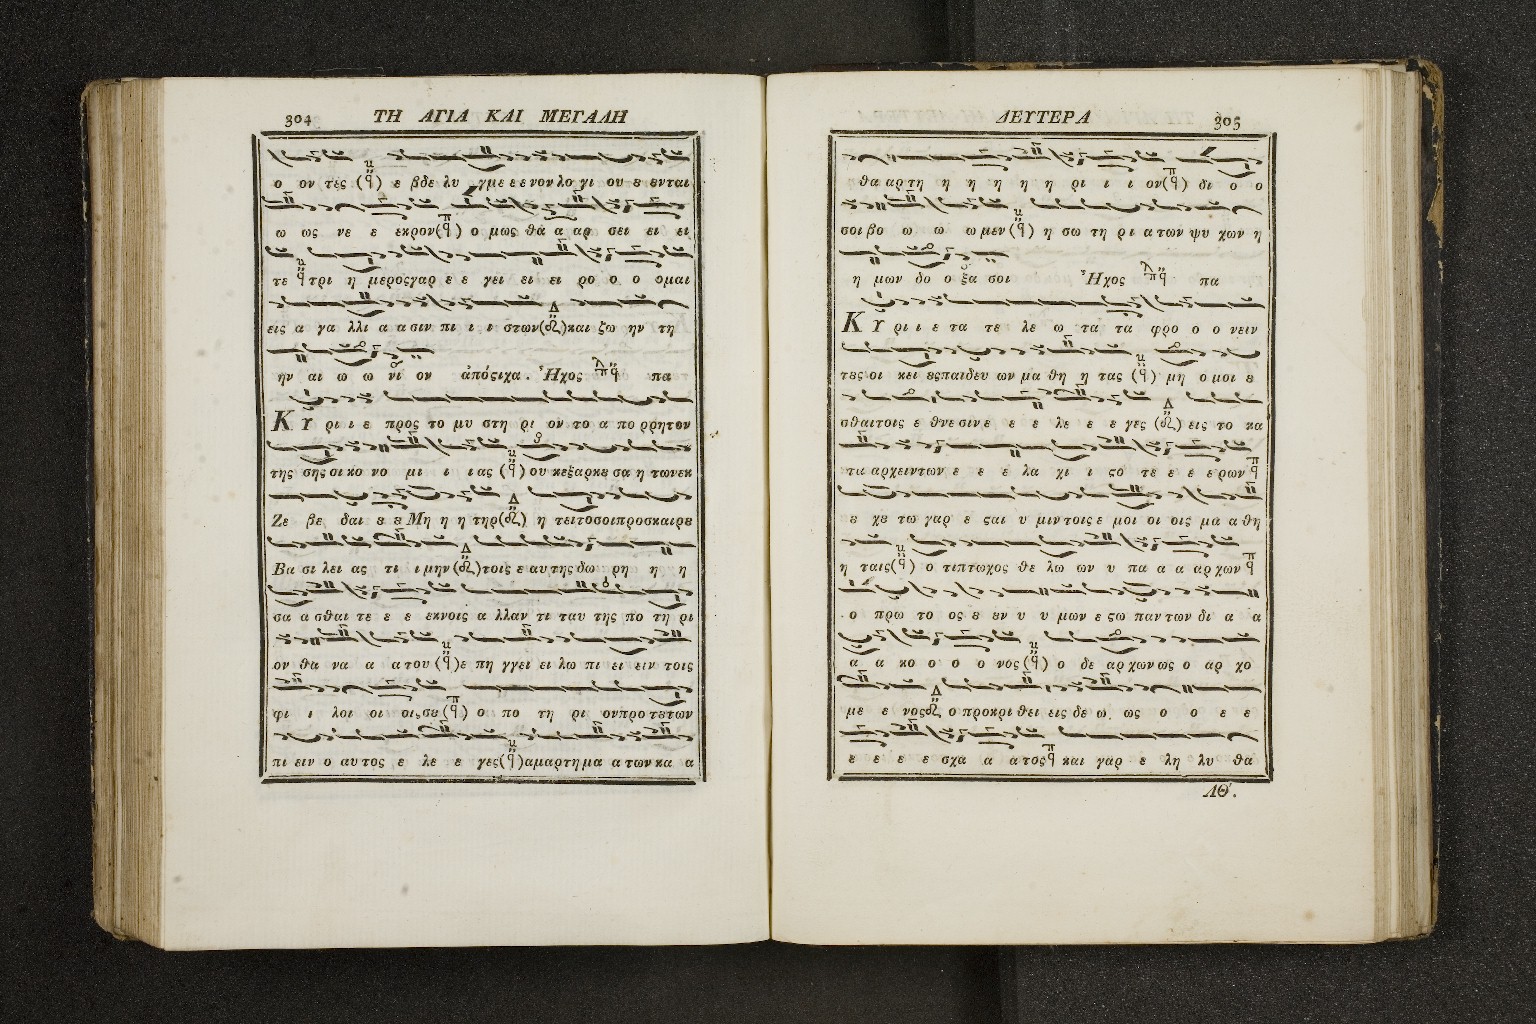 304 ΤΗ ΑΓΙΑ ΚΑΙ ΜΕΓΑΛΗ
ο ον τες ε βδε λυ γμε ε ε νον λο γι ου ȣ ȣνται
ω ως νε ε εκρον ο μως θα α αρ σει ει ει
τε τρι η μεροςγαρ ε ε γει ει ει ρο ο ο ομαι
εις α γα λλι α ασιν πι ι ι στων και ζω ην τη
ην αι ω ω νι ον ἀπόϛιχα . Ἦχος πα
Κ Υ ρι ι ε προς το μυ στη ρι ον το α πο ρρητον
της σης οι κο νο μι ι ι ας ουκεξαρκε σα η τωνεκ
Ζε βε δαι ȣ ȣ Μη η η τηρ η τειτοσοιπροσκαιρȣ
Βα σι λει ας τι ι μην τοις ε αυτης δω ρη η η
σα ασθαι τε ε ε εκνοις α λλαν τι ταυ της πο τη ρι
ον θα να α α του ε πη γγει ει λω πι ει ειν τοις
φι ι λοι οι οις σȣ ο πο τη ρι ονπροτȣτων
πι ειν ο αυτος ε λε ε γες αμαρτημα ατωνκα α
ΔΕΥΤΕΡΑ 305
θα αρτη η η η η η ρι ι ι ον δι ο ο
σοι βο ω ω ω μεν η σω τη ρι α των ψυ χων η
η μων δο ο ξα σοι Ἦχος πα
Κ Υ ρι ι ε τα τε λε ω τα τα φρο ο ο νειν
τȣς οι κει ȣςπαιδευ ων μα θη η τας μη ομοι ȣ
σθαιτοις ε θνεσινε ε ε λε ε ε γες εις το κα
τα αρχειντων ε ε ε λα χι ι ϛο τε ε ε ερων
ȣ χȣ τω γαρ ε ϛαι υ μιντοις ε μοι οι οις μα α θη
η ταις ο τιπτωχος θε λω ων υ πα α α αρχων
ο πρω το ος ȣ ȣν υ υ μων ε ϛω παντων δι α α
α α κο ο ο ο νος ο δε αρχωνως ο αρ χο
με ε νος ο προκρι θει εις δε ω ως ο ο ε ε
ε ε ε ε σχα α ατος και γαρ ε λη λυ θα
ΛΘ.